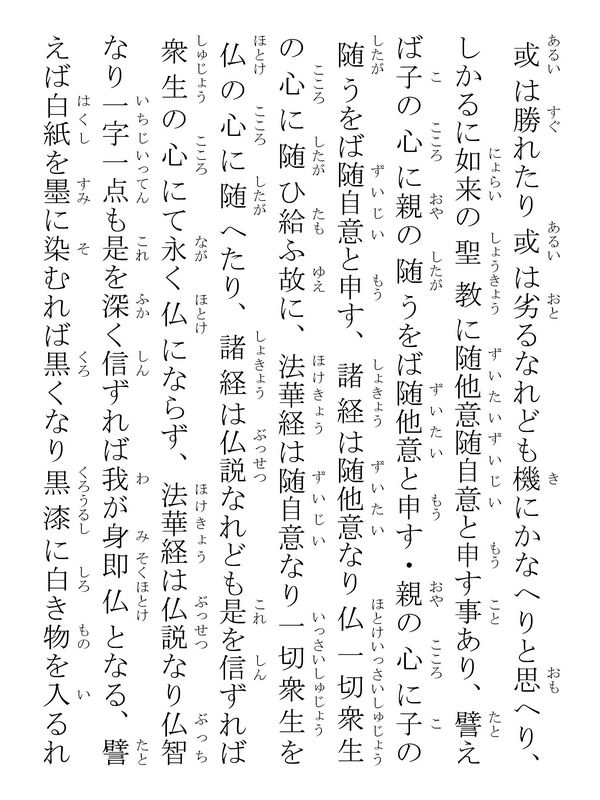 或は勝れたり或は劣るなれども機にかなへりと思へり、
しかるに如来の聖教に随他意随自意と申す事あり、譬え
ば子の心に親の随うをば随他意と申す・親の心に子の
随うをば随自意と申す、諸経は随他意なり仏一切衆生
の心に随ひ給ふ故に、法華経は随自意なり一切衆生を
仏の心に随へたり、諸経は仏説なれども是を信ずれば
衆生の心にて永く仏にならず、法華経は仏説なり仏智
なり一字一点も是を深く信ずれば我が身即仏となる、譬
えば白紙を墨に染むれば黒くなり黒漆に白き物を入るれ